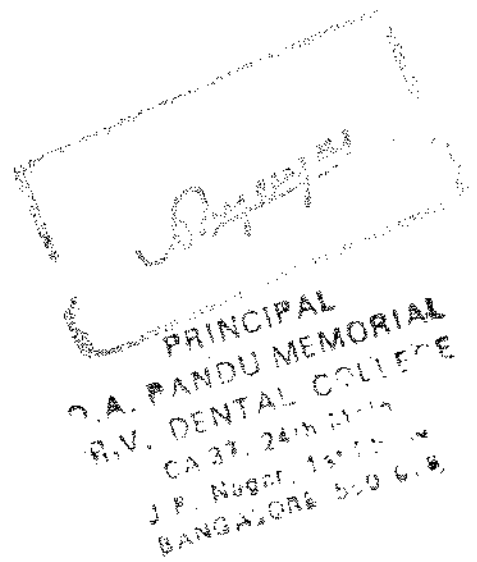 PRINCIPAL
D.A. PANDU MEMORIAL
R.V. DENTAL COLLEGE
CA 37, 24th
J.P. Nagar,
BANGALORE